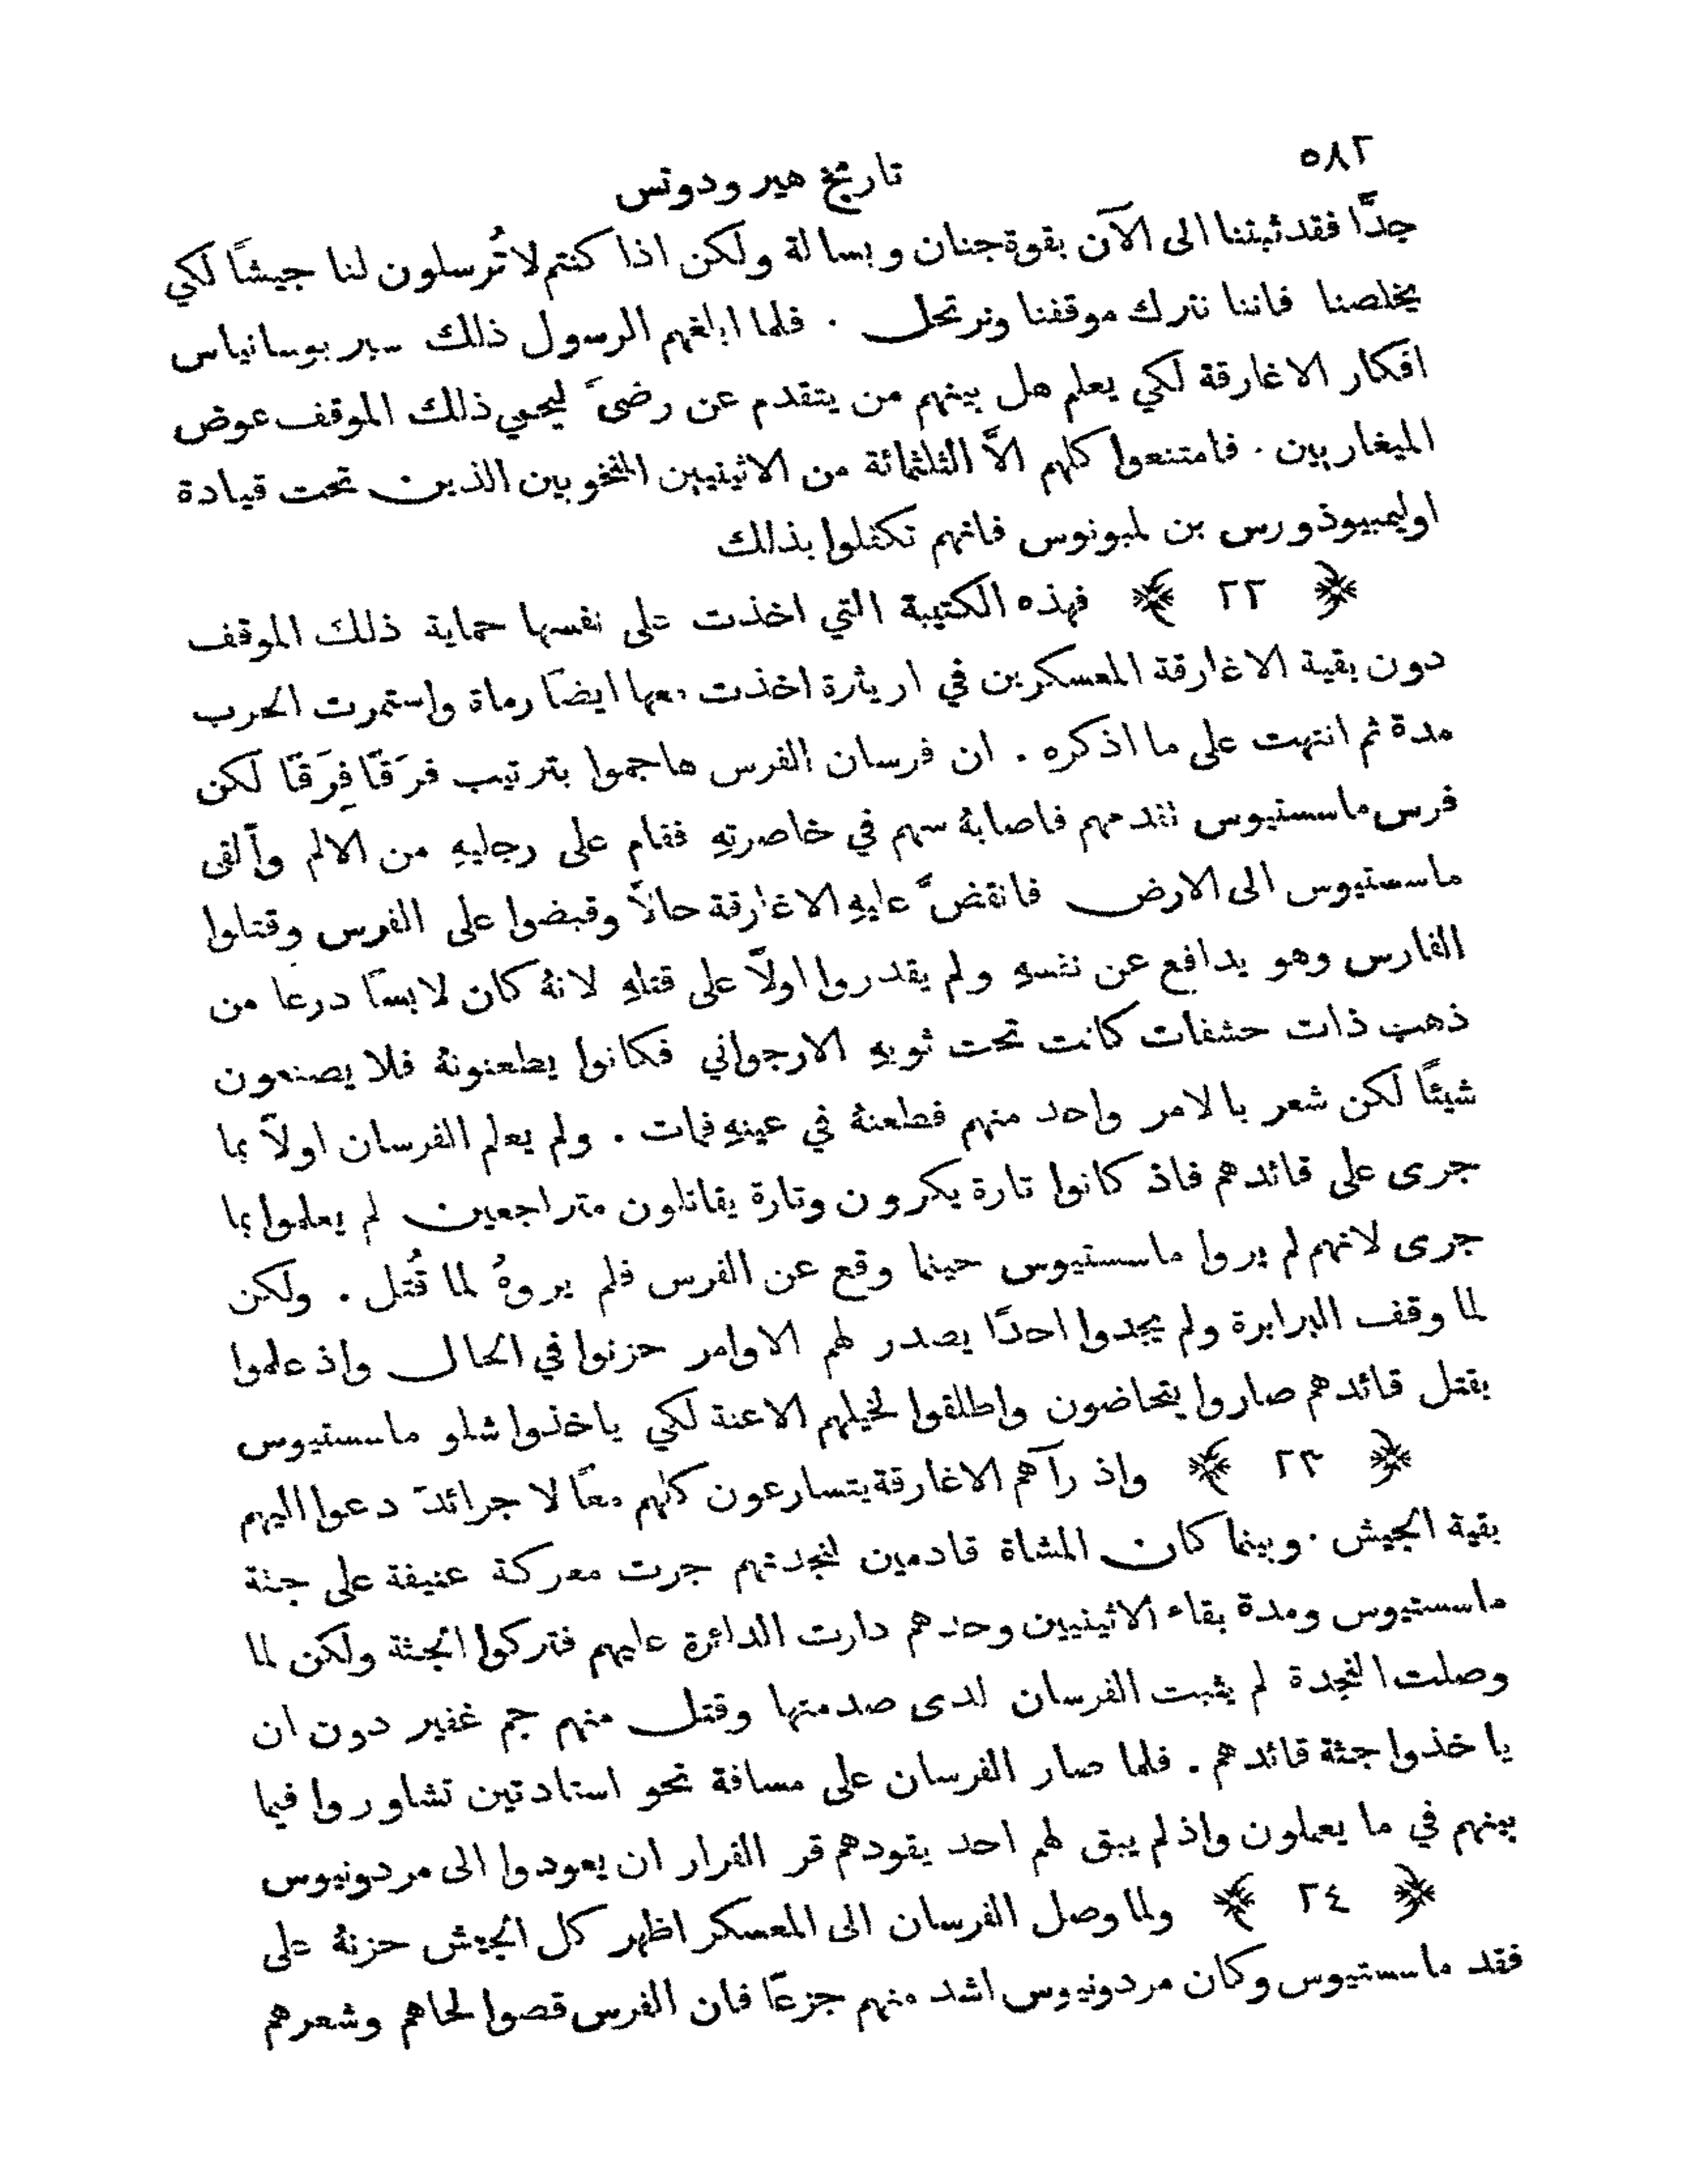 ٥٨٢
تاريخ هيرودوتس
جدًّا فقد ثبتنا الى الآن بقوة جنان وبسالة ولكن اذا كنتم لا تُرسلون لنا جيشًا لكي
يخلصنا فاننا نترك موقفنا ونرتحل . فلما ابلغهم الرسول ذلك سبر بوسانياس
افكار الاغارقة لكي يعلم هل بينهم من يتقدم عن رضىً ليحمي ذلك الموقف عوض
الميغاريين . فامتنعوا كلهم الاَّ الثلثمائة من الاثينيين المنخوبين الذين تحت قيادة
اوليمبيوذورس بن لمبونوس فانهم تكفلوا بذلك
﴿ ٢٢ ﴾ فهذه الكتيبة التي اخذت على نفسها حماية ذلك الموقف
دون بقية الاغارقة المعسكرين في اريثرة اخذت معها ايضًا رماة واستمرت الحرب
مدة ثم انتهت على ما اذكره . ان فرسان الفرس هاجموا بترتيب فرَقًا فِرَقًا لكن
فرس ماسستيوس تقدمهم فاصابهُ سهم في خاصرتهِ فقام على رجليهِ من الالم وألقى
ماسستيوس الى الارض فانقضَّ عليهِ الاغارقة حالاً وقبضوا على الفرس وقتلوا
الفارس وهو يدافع عن نفسهِ ولم يقدروا اولاً على قتلهِ لانهُ كان لابسًا درعا من
ذهب ذات حشفات كانت تحت ثوبهِ الارجواني فكانوا يطعنونهُ فلا يصنعون
شيئًا لكن شعر بالامر واحد منهم فطعنهُ في عينهِ فمات . ولم يعلم الفرسان اولاً بما
جرى على قائدهم فاذ كانوا تارة يكرون وتارة يقاتلون متراجعين لم يعلموا بما
جرى لانهم لم يروا ماسستيوس حينما وقع عن الفرس فلم يروهُ لما قُتل . ولكن
لما وقف البرابرة ولم يجدوا احدًا يصدر لهم الاوامر حزنوا في الحال واذ علموا
بقتل قائدهم صاروا يتحاضون واطلقوا لخيلهم الاعنة لكي ياخذوا شلو ماسستيوس
﴿ ٢٣ ﴾ واذ رآهم الاغارقة يتسارعون كلهم معًا لا جرائدَ دعوا اليهم
بقية الجيش . وبينما كان المشاة قادمين لنجدتهم جرت معركة عنيفة على جثة
ماسستيوس ومدة بقاء الاثينيين وحدهم دارت الدائرة عليهم فتركوا الجثة ولكن لما
وصلت النجدة لم يثبت الفرسان لدى صدمتها وقتل منهم جم غفير دون ان
ياخذوا جثة قائدهم . فلما صار الفرسان على مسافة نحو استادتين تشاوروا فيما
بينهم في ما يعملون واذ لم يبق لهم احد يقودهم قر القرار ان يعودوا الى مردونيوس
﴿ ٢٤ ﴾ ولما وصل الفرسان الى المعسكر اظهر كل الجيش حزنهُ على
فقد ماسستيوس وكان مردونيوس اشد منهم جزعًا فان الفرس قصوا لحاهم وشعرهم